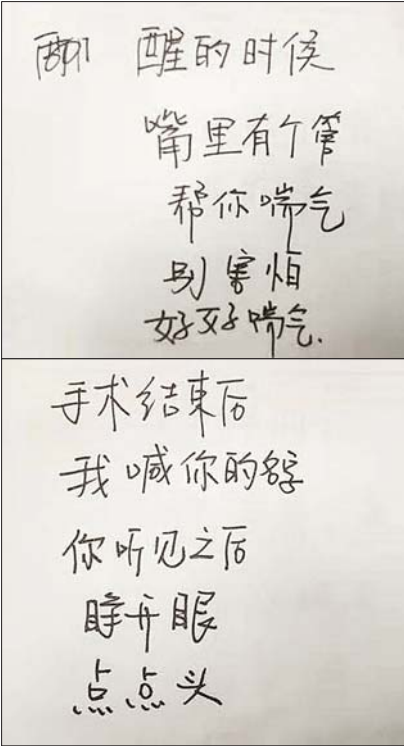 醒的时侯
嘴里有个管
帮你喘气
别害怕
好好喘气.
手术结束后
我喊你的名字
你听见之后
睁开眼
点点头